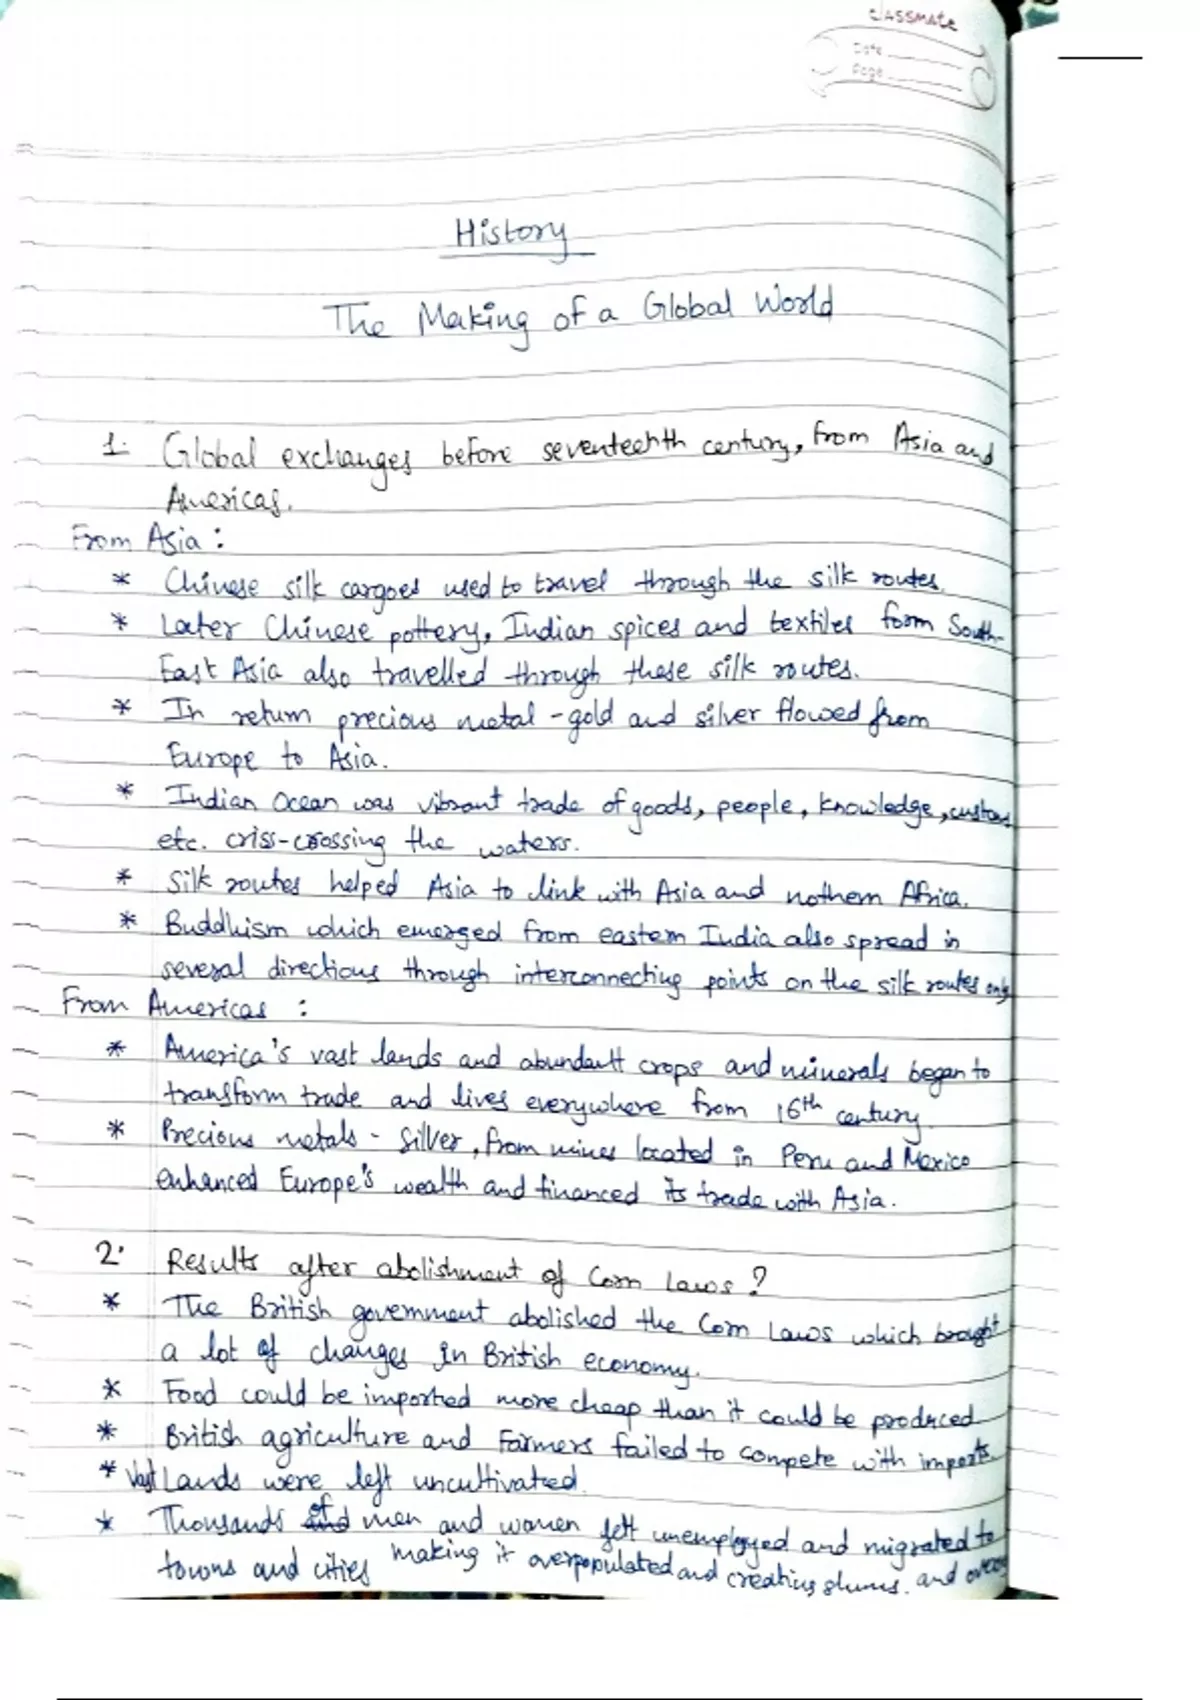 classmate
Date
Page
History
The Making of a Global World
1. Global exchanges before seventeehth century, from Asia and
Americas.
From Asia :
* Chinese silk cargoes used to travel through the silk routes.
* Later Chinese pottery, Indian spices and textiles form South-
East Asia also travelled through these silk routes.
* In return precious metal - gold and silver flowed from
Europe to Asia.
* Indian Ocean was vibrant trade of goods, people, knowledge, customs
etc. criss-crossing the waters.
* Silk routes helped Asia to link with Asia and nothern Africa.
* Buddhism which emerged from eastern India also spread in
several directions through interconnecting points on the silk routes only
From Americas :
* America's vast lands and abundantt crops and minerals began to
transform trade and lives everywhere from 16th century.
* Precious metals - Silver, from mines located in Peru and Mexico
enhanced Europe's wealth and financed its trade with Asia.
2. Results after abolishment of Corn Laws ?
* The British government abolished the Corn Laws which brought
a lot of changes in British economy.
* Food could be imported more cheap than it could be produced
* British agriculture and Farmers failed to compete with imports.
* Vast Lands were left uncultivated.
* Thousands of men and women felt unemployed and migrated to
towns and cities making it overpopulated and creating slums. and